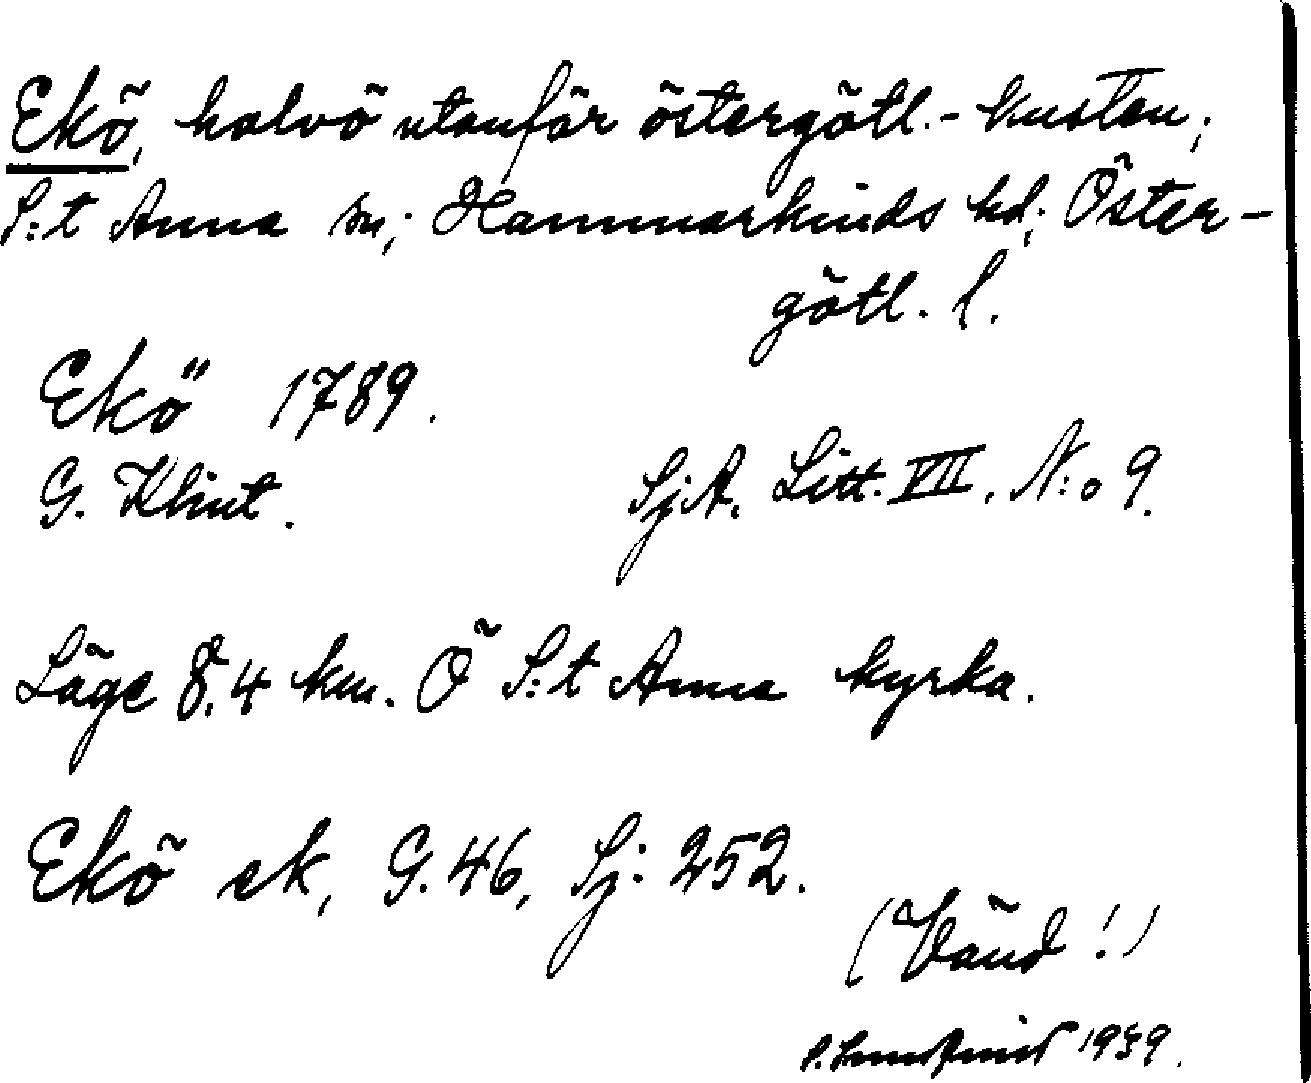 Ekö, halvö utanför östergötl.-kusten;
S:t Anna sn; Hammarkinds hd; Öster-
götl. l.
Ekö 1789.
G. Klint.
SjA. Litt. VII. N:o 9.
Läge 8.4 km. Ö S:t Anna kyrka.
Ekö ek, G. 46, Sj: 252.
(Vänd!)
1939.